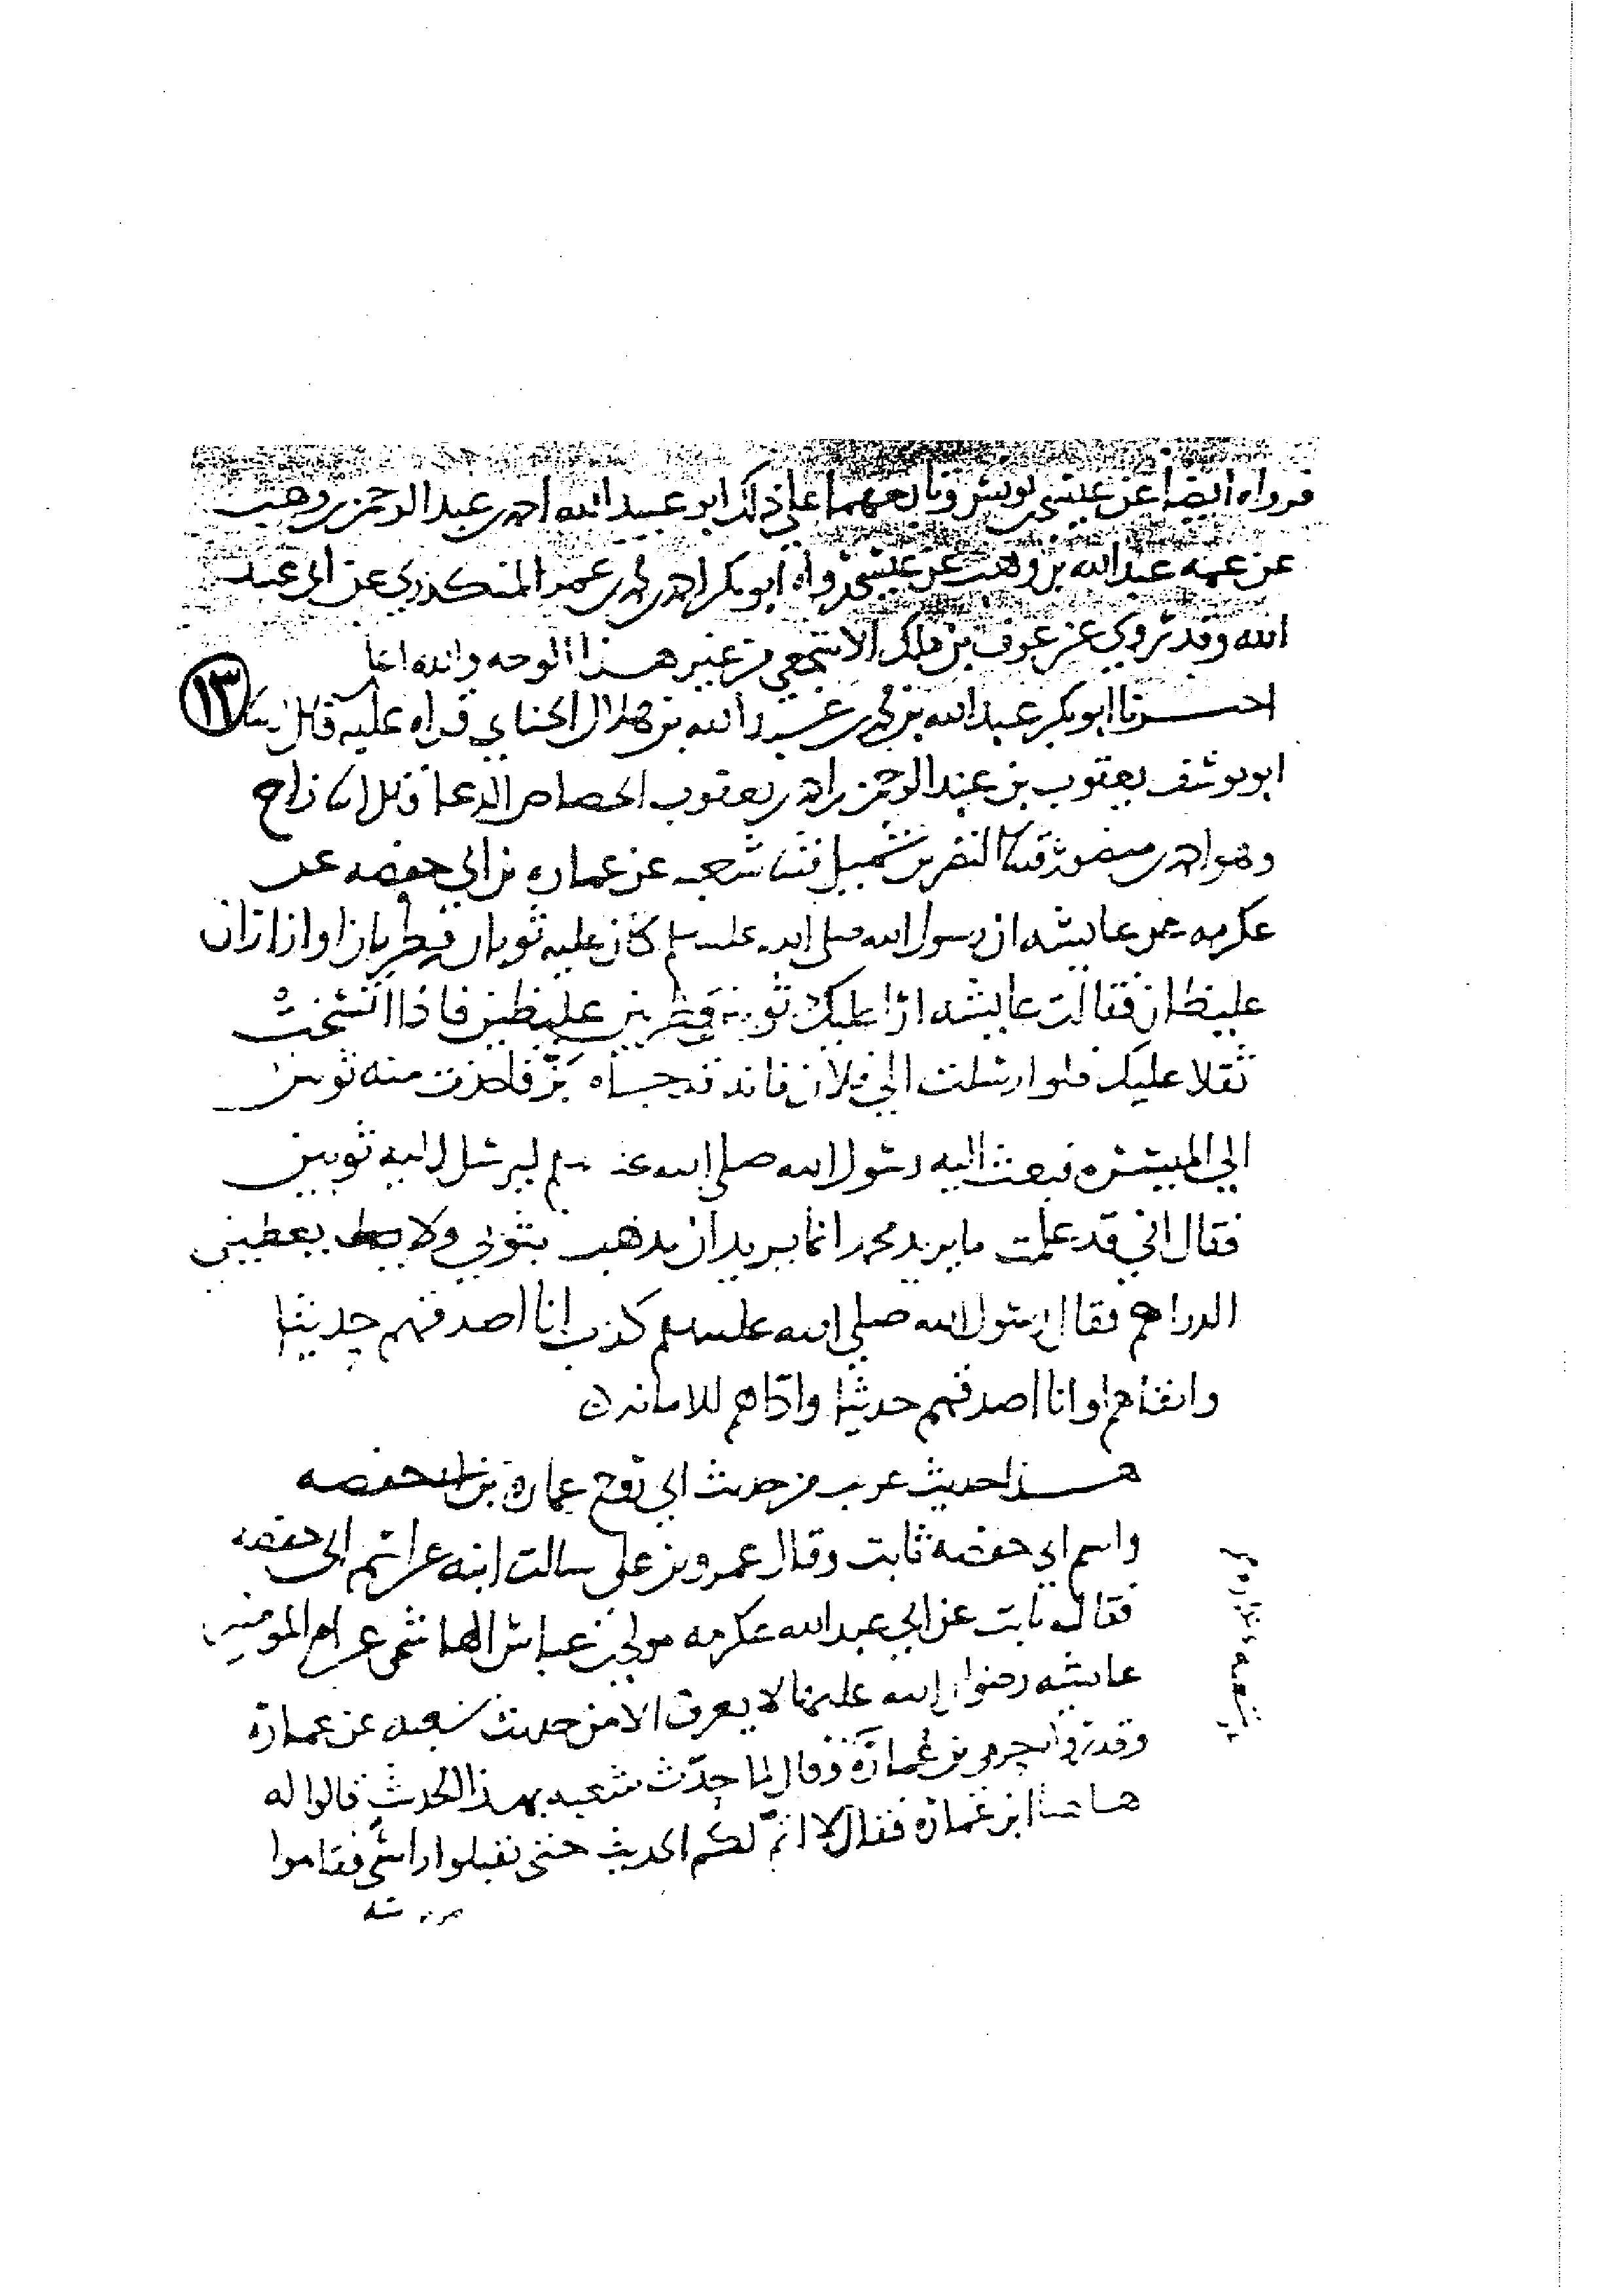 فرواه ايضا عن عيسى بن يونس وتابعهما على ذلك ابو عبيد الله احمد بن عبد الرحمن بن وهب
عن عمه عبد الله بن وهب عن عيسى رواه ابو بكر احمد بن محمد بن عمر المنكدري عن ابي عبيد
الله وقد روي عن عوف بن مالك الاشجعي من غير هذا الوجه والله اعلم
١٣ اخبرنا ابو بكر عبد الله بن محمد بن عبد الله بن هلال الحنائي قراه عليه قال ثنا
ابو يوسف يعقوب بن عبد الرحمن بن احمد بن يعقوب الجصاص الدعا قال ثنا زاج
وهو احمد بن منصور قثنا النضر بن شميل قثنا شعبه عن عماره بن ابي حفصه عن
عكرمه عن عايشه ان رسول الله صلى الله عليه وسلم كان عليه ثوبان قطريان او ازاران
غليظان فقالت عايشه ان عليك ثوبين قطريين غليظين فاذا اتشحت
ثقلا عليك فلو ارسلت الى فلان فانه قد جاه بز فاخذت منه ثوبين
الي الميسره فبعث اليه رسول الله صلى الله عليه وسلم ليرسل اليه ثوبين
فقال اني قد علمت ما يريد محمد انما يريد ان يذهب بثوبي ولا يعطيني
الدراهم فقال رسول الله صلى الله عليه وسلم كذب انا اصدقهم حديثا
واتقاهم او انا اصدقهم حديثا واداهم للامانه
هذا حديث غريب من حديث ابي روح عماره بن ابي حفصه
واسم ابي حفصه ثابت وقال عمرو بن علي سالت ابنه عن اسم ابي حفصه
فقال ثابت عن ابي عبد الله عكرمه مولى بن عباس الهاشمي عن ام المومنين
عايشه رضوان الله عليها لا يعرف الا من حديث شعبه عن عمارة
وقد رواه حرمي بن عمارة وقال لما حدث شعبه بهذا الحديث قالوا له
هاهنا ابن عمارة فقال لا اتم لكم الحديث حتى تقبلوا راسه فقاموا